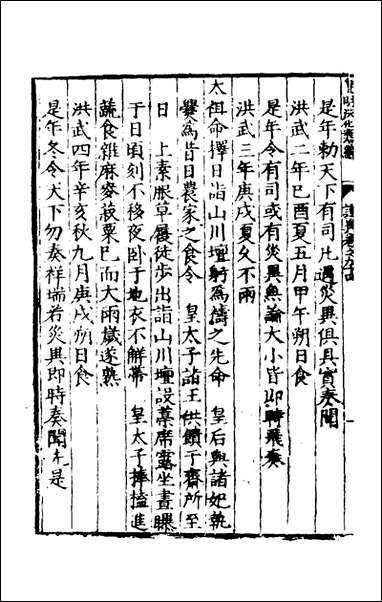 是年勅天下有司凡遇災異俱具實奏聞
洪武二年己酉夏五月甲午朔日食
是年令有司或有災異無論大小皆即時飛奏
洪武三年庚戌夏久不雨
太祖命擇日詣山川壇躬為禱之先命 皇后與諸妃執
爨為昔日農家之食令 皇太子諸王供饋于齋所至
日 上素服草屨徒步出詣山川壇設藁席露坐晝曝
于日頃刻不移夜卧于地衣不解帶 皇太子捧榼進
蔬食雜麻麥菽粟已而大雨歲遂熟
洪武四年辛亥秋九月庚戌朔日食
是年冬令天下勿奏祥瑞若災異即時奏聞先是